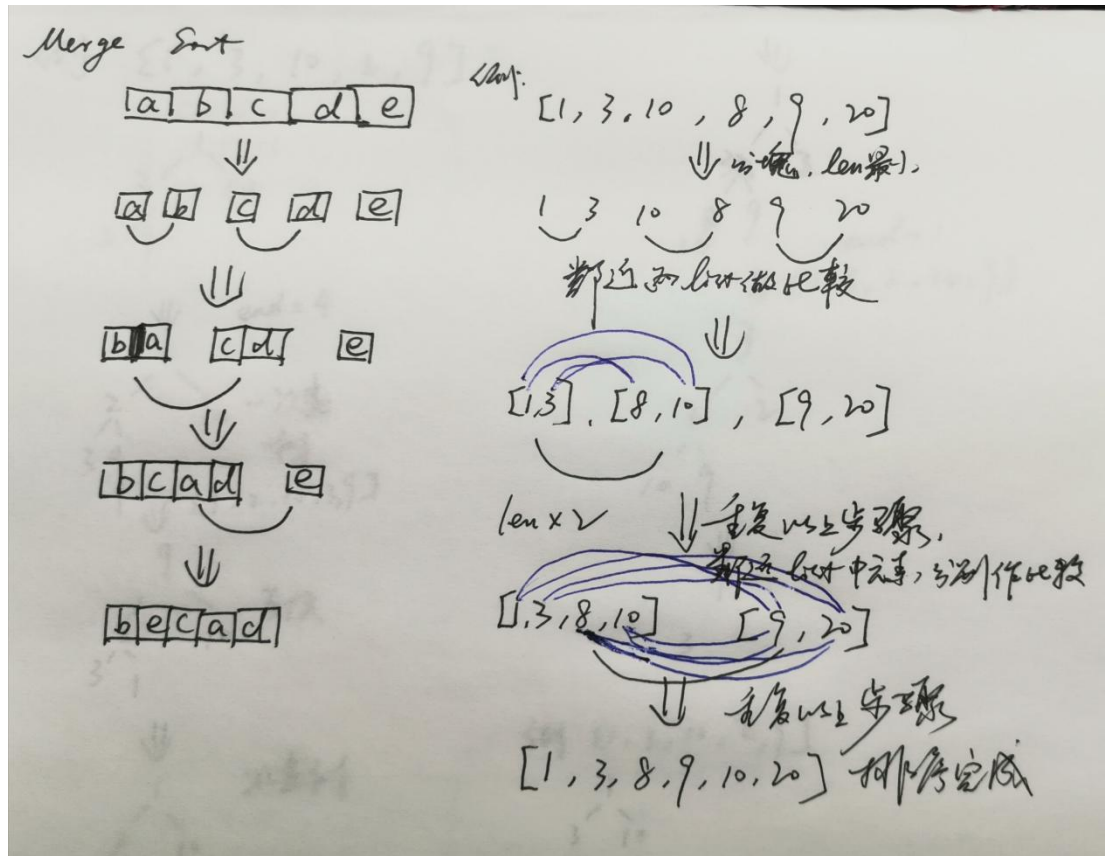 Merge Sort
a b c d e
a b c d e
b a c d e
b c a d e
b e c a d
例:
[1, 3, 10, 8, 9, 20]
分块, len最小
1 3 10 8 9 20
邻近两list做比较
[1,3], [8,10], [9,20]
len×2
重复以上步骤,
邻近list中元素,分别作比较
[1,3,8,10] [9,20]
重复以上步骤
[1,3,8,9,10,20] 排序完成